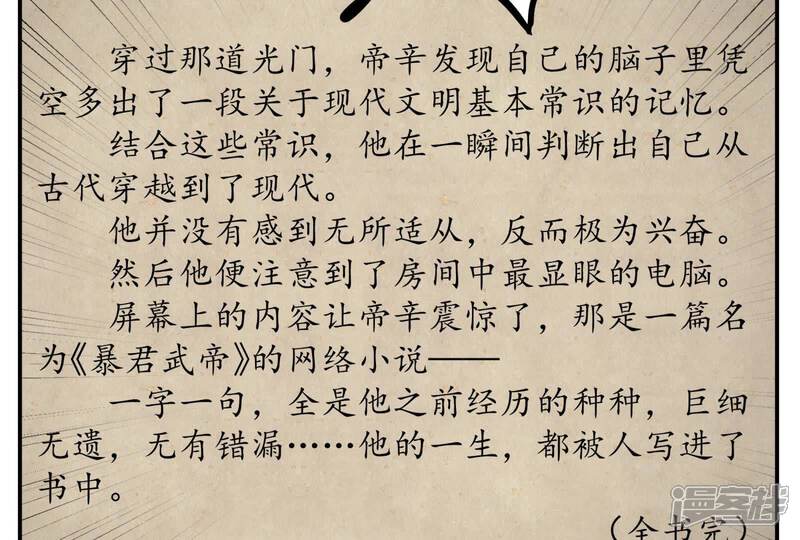 穿过那道光门，帝辛发现自己的脑子里凭
空多出了一段关于现代文明基本常识的记忆。
结合这些常识，他在一瞬间判断出自己从
古代穿越到了现代。
他并没有感到无所适从，反而极为兴奋。
然后他便注意到了房间中最显眼的电脑。
屏幕上的内容让帝辛震惊了，那是一篇名
为《暴君武帝》的网络小说——
一字一句，全是他之前经历的种种，巨细
无遗，无有错漏……他的一生，都被人写进了
书中。
（全书完）
漫客栈